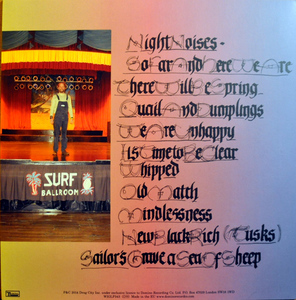 Night Noises -
So Far And Here We Are
There Will Be Spring
Quail And Dumplings
We Are Unhappy
It's Time to Be Clear
Whipped
Old Match
Mindlessness
New Black Rich (Tusks)
Sailors Grave a Sea of Sheep
SURF
BALLROOM